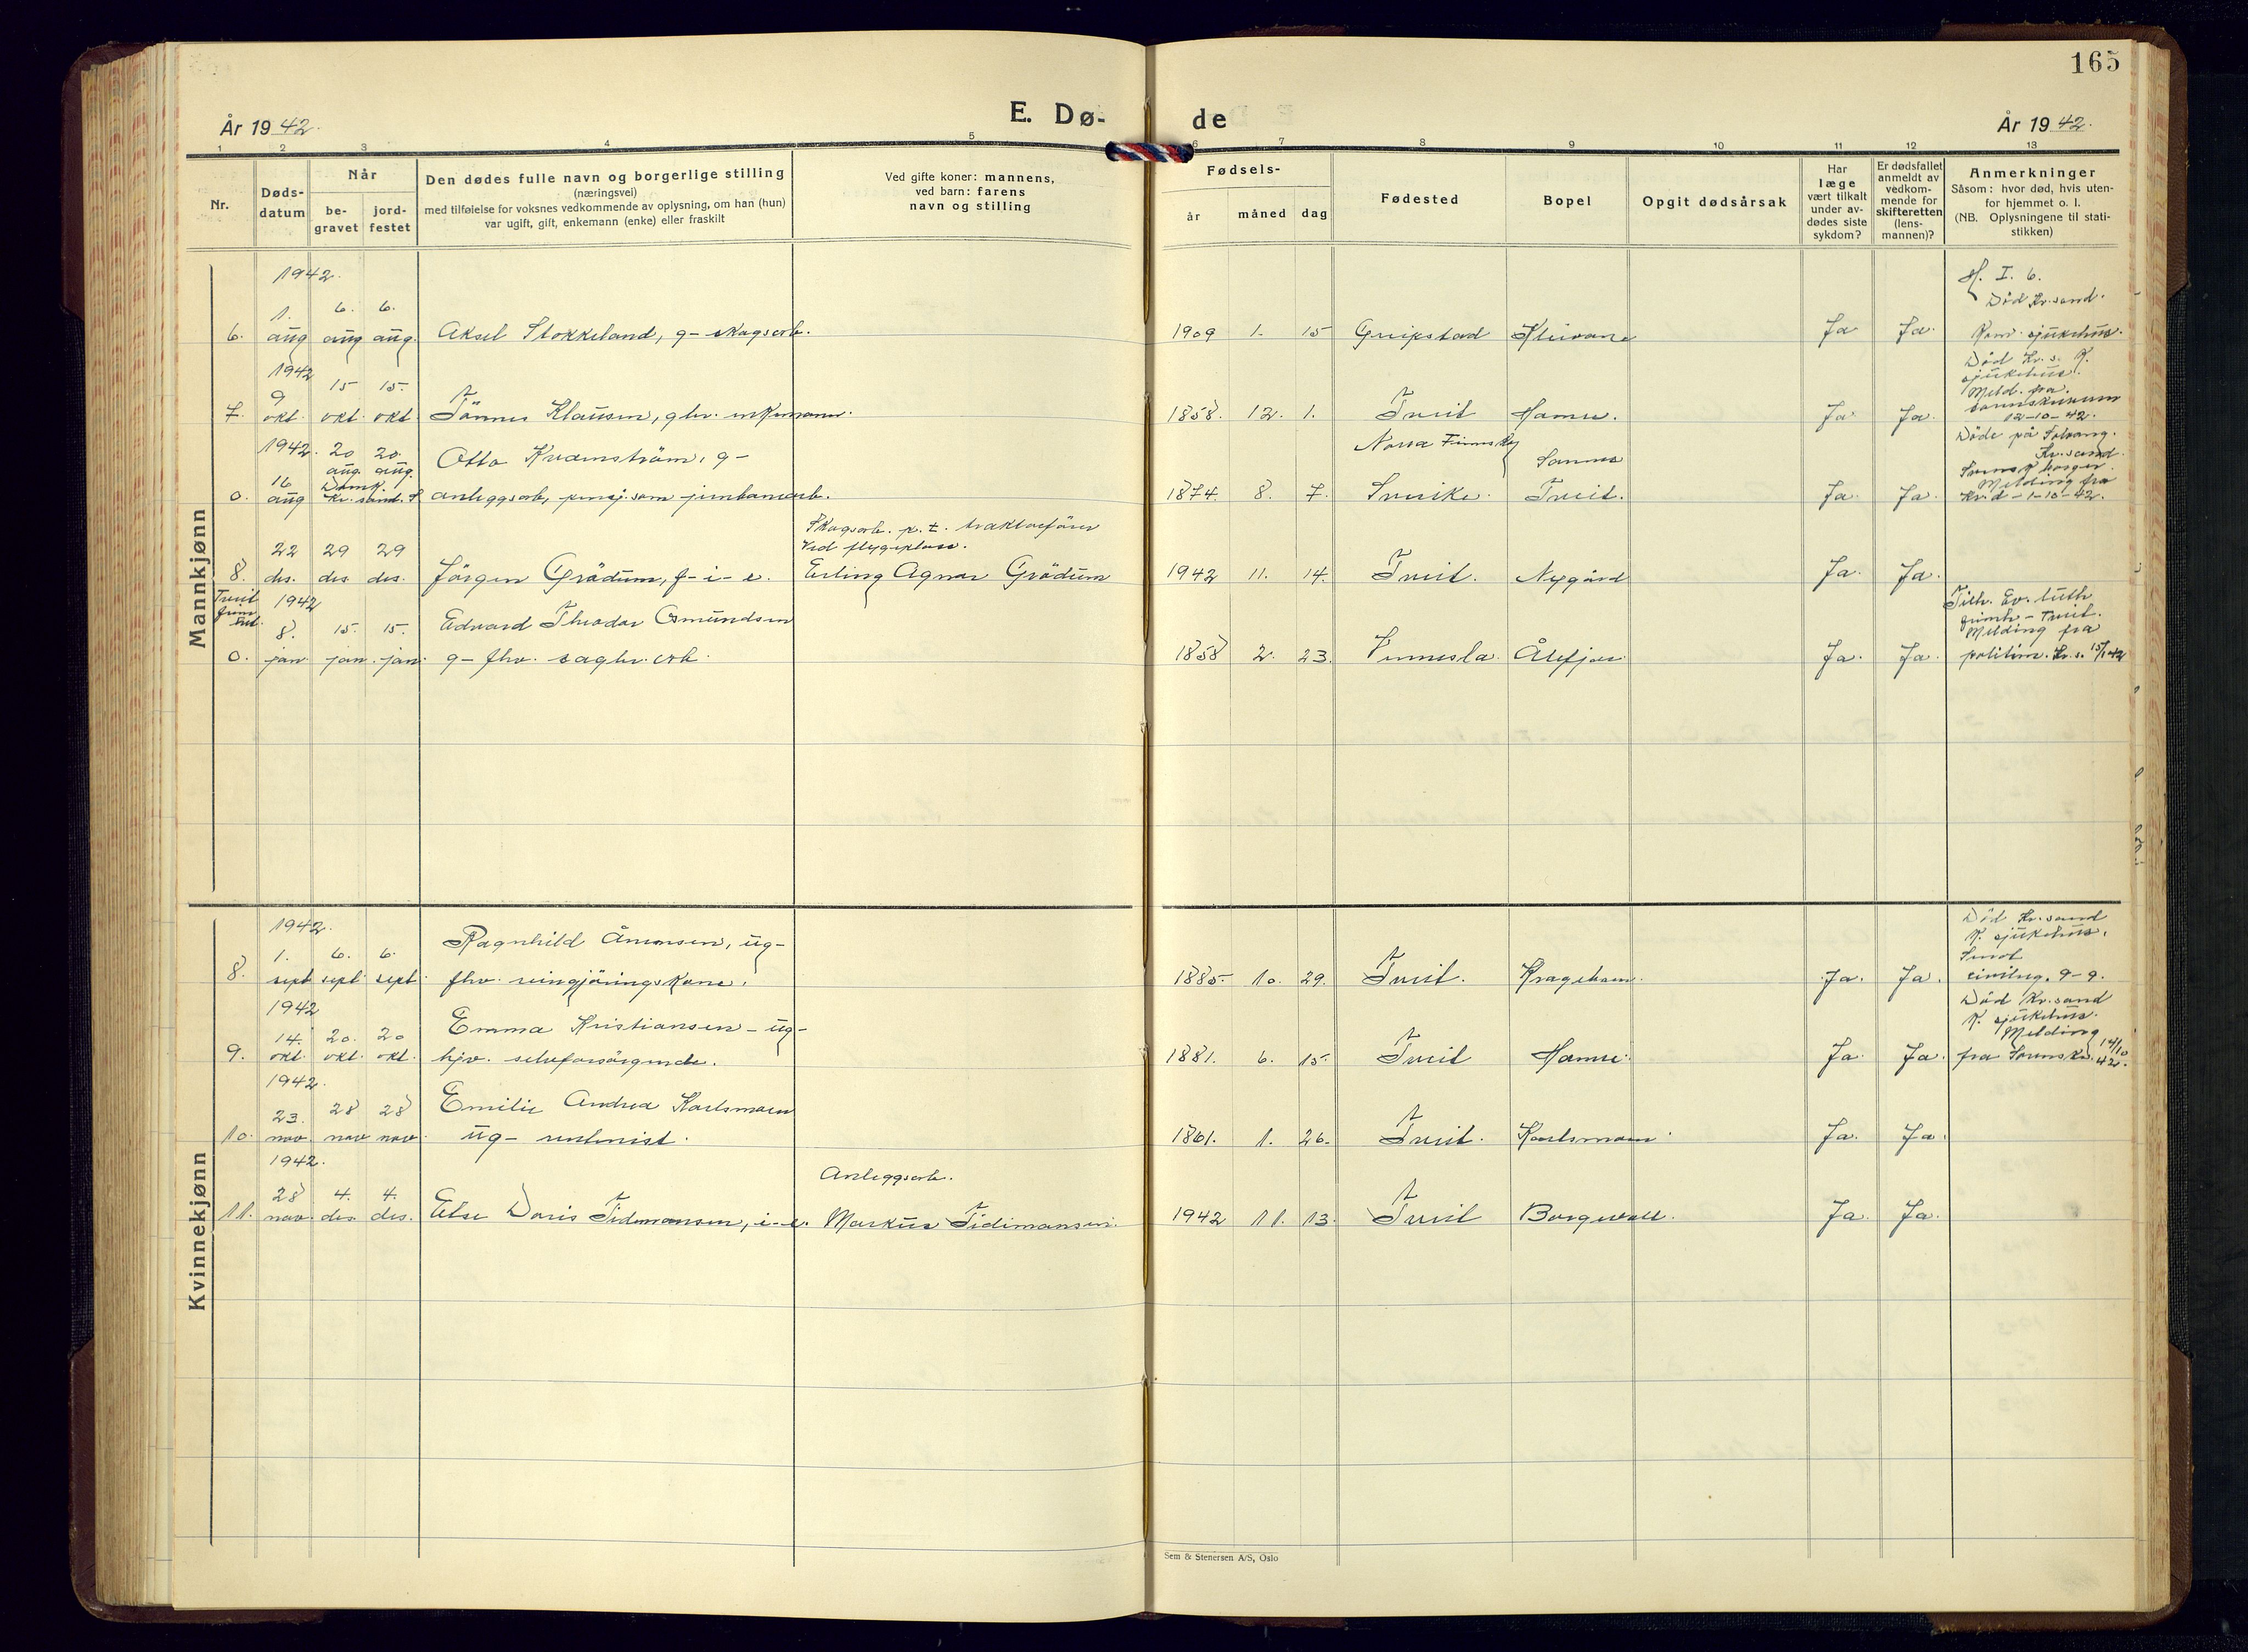 165
År 1942.
E. Dø-
de
År 1942.
1 2 3 4 5 6 7 8 9 10 11 12 13
Nr.
Døds-
datum
Når
be-
gravet
jord-
festet
Den dødes fulle navn og borgerlige stilling
(næringsvei)
med tilføielse for voksnes vedkommende av oplysning, om han (hun)
var ugift, gift, enkemann (enke) eller fraskilt
Ved gifte koner: mannens,
ved barn: farens
navn og stilling
Fødsels-
år
måned
dag
Fødested
Bopel
Opgit dødsårsak
Har
læge
vært tilkalt
under av-
dødes siste
sykdom?
Er dødsfallet
anmeldt av
vedkom-
mende for
skifteretten
(lens-
mannen)?
Anmerkninger
Såsom: hvor død, hvis uten-
for hjemmet o. l.
(NB. Oplysningene til stati-
stikken)
Mannkjønn
1942.
I. 6.
Død Kr.sand.
1. 6. 6.
6. aug aug aug. Aksel Stokkeland, g- skogsarb. 1909 1. 15 Greipstad Kleivane Ja Ja. Kom. sjukehus.
1942
9 15 15.
Død Kr.s. K.
sjukehus.
Meld. fra
12-10-42.
7. okt. okt. okt. Tönnes Klausen, gbr. enkemann. 1858. 12. 1. Tveit Hamre. Ja. Ja
1942. 20 20.
aug. aug.
Otto Kvarnström, g-
Norra Finnskog
Døde på Solvang.
Kr.sand.
Svensk borger.
Melding fra
16
0. aug Kr.sand. anleggsarb, pensj. som jernbanearb. 1874. 8. 7. Sverike. Tveit. Ja. Ja. Kr.d - 1-10-42.
Skogsarb. p.t. traktorförer
ved flygeplass.
22 29 29
8. des. des des. Jörgen Grödum, f-i-e. Erling Agnar Grödum 1942 11. 14. Tveit. Nygård Ja. Ja.
Tveit
frim
1942
8. 15. 15. Edvard Theodor Osmundsen
Tilh. Ev. luth
frimh - Tveit.
Melding fra
0. jan jan. jan. g- fhv. sagbr. arb. 1858 2. 23. Vennesla. Ålefjær Ja. Ja. politim. Kr.s. 15/1 42
Kvinnekjønn
1942.
1. 6. 6. Ragnhild Åmonsen, ug-
Død Kr.sand
K. sjukehus.
8. sept sept sept. fhv. reingjöringskone. 1885. 10. 29. Tveit. Kragebom. Ja. Ja. 9-9.
1942
14. 20. 20 Emma Kristiansen - ug-
Død Kr.sand
K. sjukehus.
Melding
9. okt. okt. okt. hjv. selvforsörgende. 1881. 6. 15. Tveit Hamre. Ja. Ja. fra Sorensk. 14/10 42.
1942.
23. 28 28 Emilie Andrea Karlsmoen
10. nov. nov nov. ug- rentenist. 1861. 1. 26. Tveit. Karlsmoen. Ja. Ja.
1942.
Anleggsarb.
28 4. 4.
11. nov. des des. Else Doris Tidemansen, i-e. Markus Tidimansen. 1942 11. 13. Tveit Borgevoll. Ja. Ja.
Sem & Stenersen A/S, Oslo